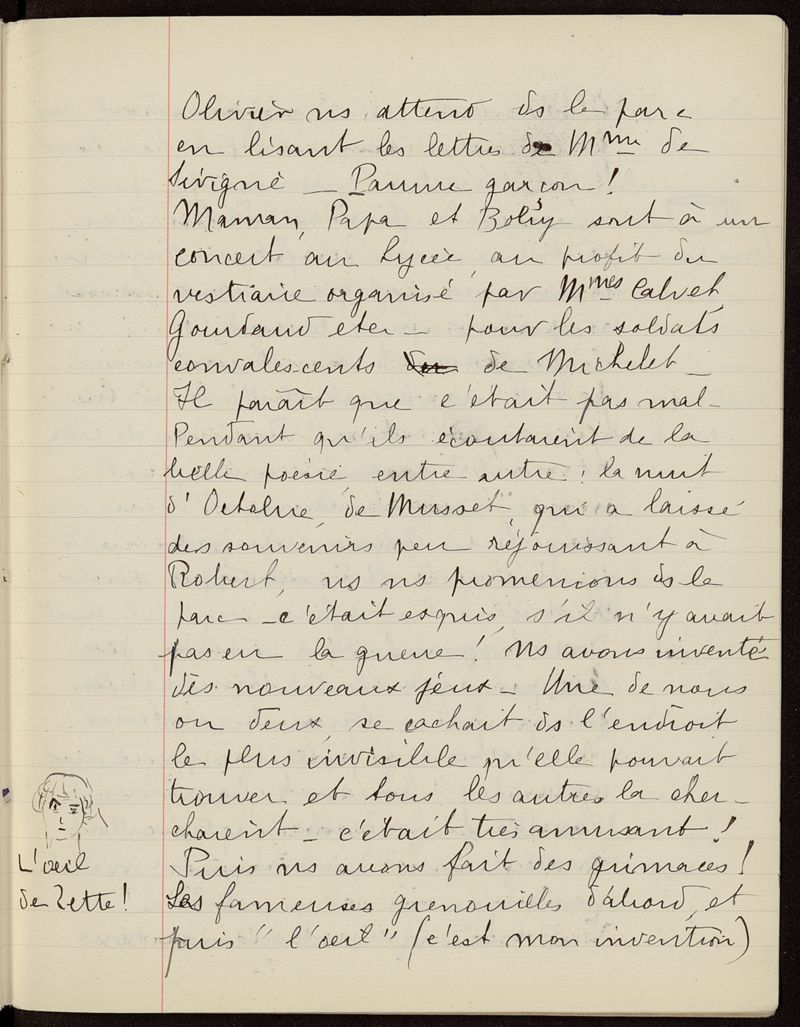 Olivier ns attend ds le parc
en lisant les lettres de Mme de
Sévigné _ Pauvre garçon !
Maman, Papa et Boby sont à un
concert au lycée, au profit du
vestiaire organisé par Mmes Calvet,
Gourdaud etc _ pour les soldats
convalescents de Michelet _
Il paraît que c'était pas mal _
Pendant qu'ils écoutaient de la
belle poésie, entre autre : la nuit
d'Octobre, de Musset, qui a laissé
des souvenirs peu réjouissant à
Robert, ns ns promenions ds le
parc _ c'était esquis, s'il n'y avait
pas eu la guerre ! Ns avons inventé
des nouveaux jeux _ Une de nous
ou deux, se cachait ds l'endroit
le plus invisible qu'elle pouvait
trouver et tous les autres la cher_
chaient _ c'était très amusant !
Puis ns avons fait des grimaces !
Les fameuses grenouilles d'abord, et
puis " l'œil " (c'est mon invention)
L'œil
de Zette !